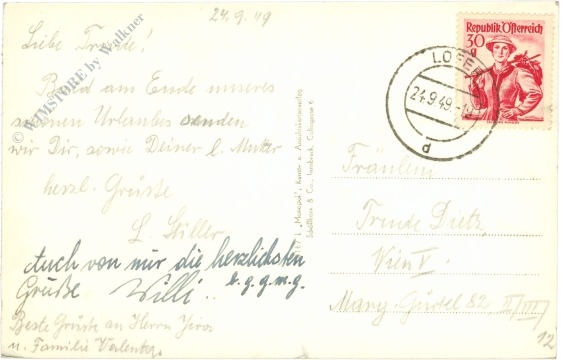 24.9.49
Liebe Trude!
Bald am Ende unseres
schönen Urlaubes senden
wir Dir, sowie Deiner l. Mutter
herzl. Grüsse
L. Stiller
Auch von mir die herzlichsten
Grüße Willi..
Beste Grüsse an Herrn
u. Familie
© WIMSTORE by Walkner
Schöllhorn & Co., Innsbruck, Colingasse 6
Republik Österreich
30g
LOFER
24.9.49
d
Fräulein
Trude Dietz
Wien V.
Marg. Gürtel 82 II/III/
12